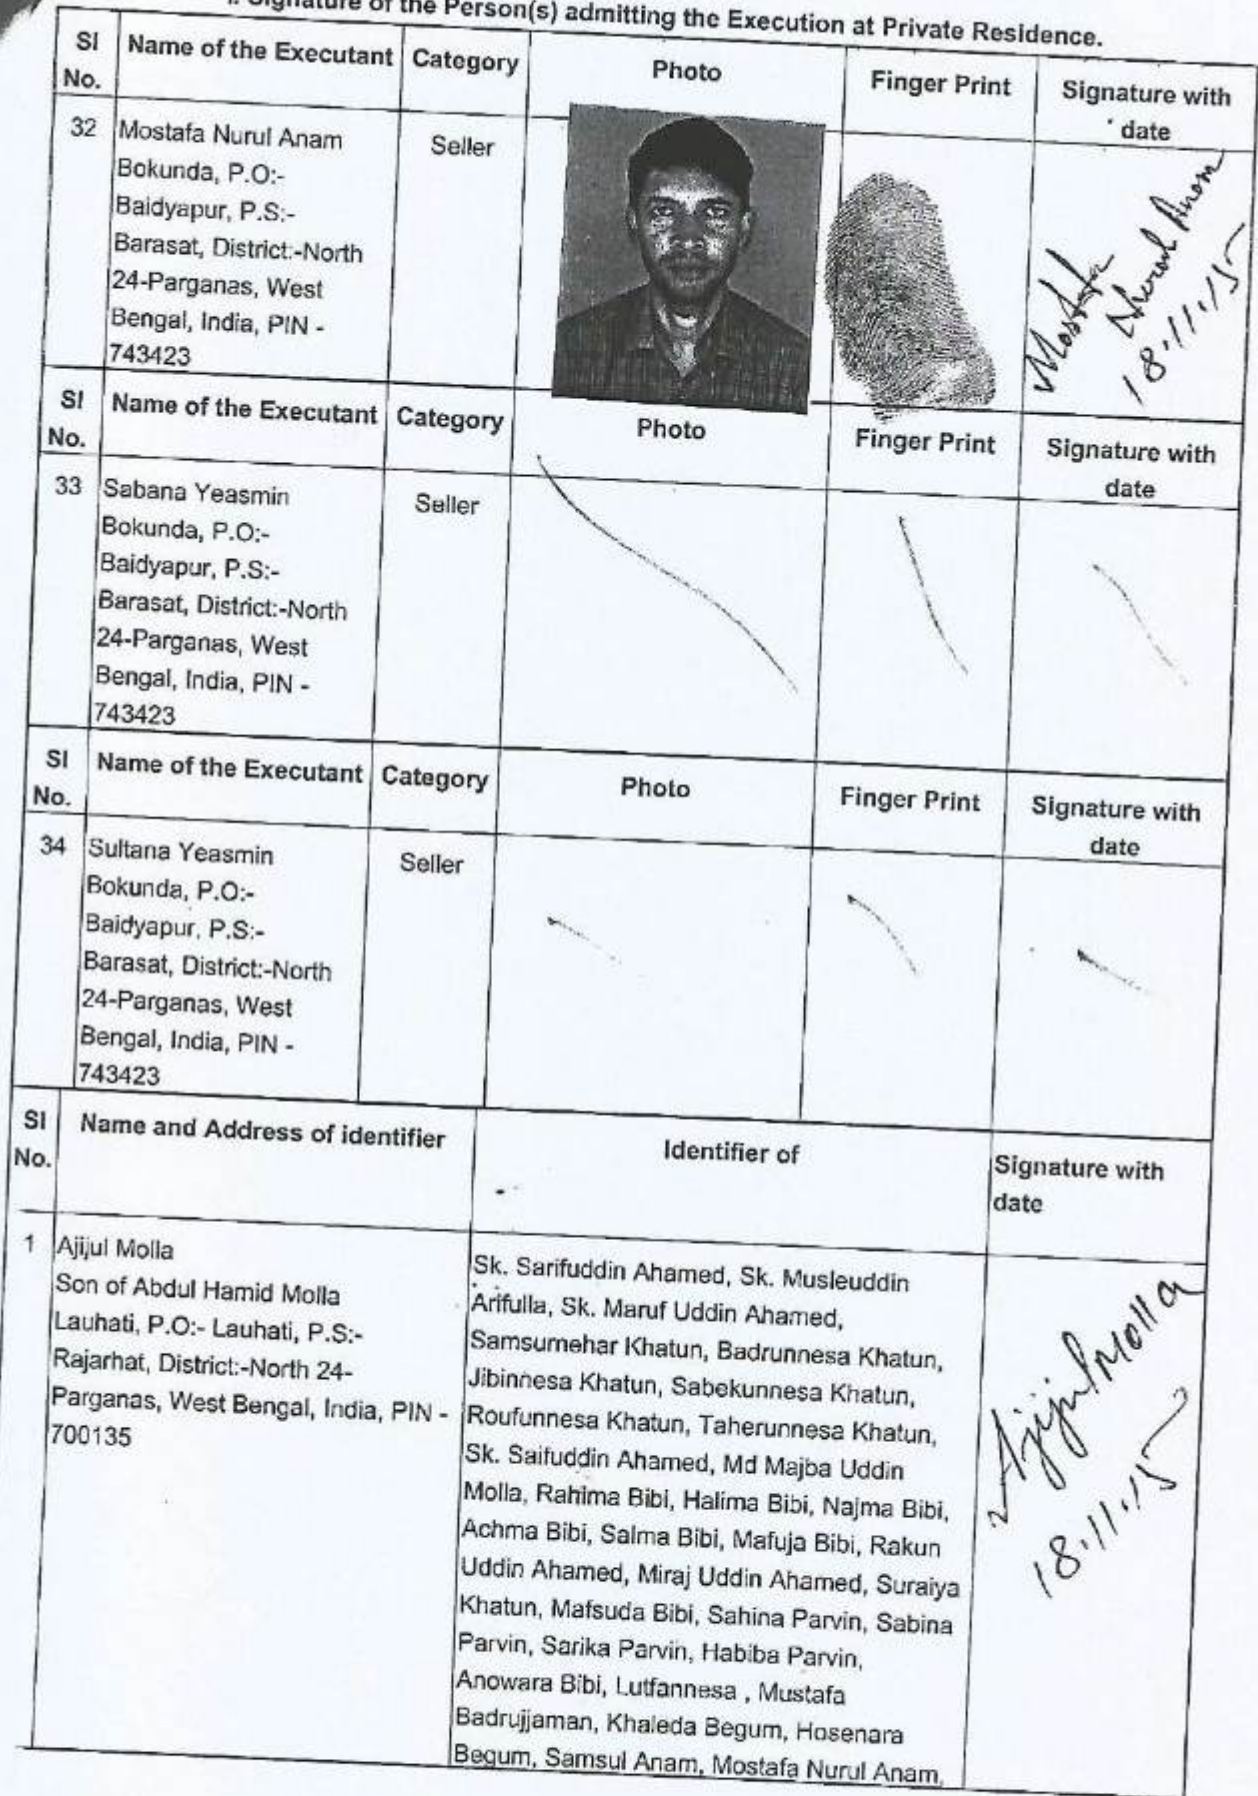 I. Signature of the Person(s) admitting the Execution at Private Residence.
Sl No. Name of the Executant Category Photo Finger Print Signature with date
32 Mostafa Nurul Anam Seller
Bokunda, P.O:-
Baidyapur, P.S:-
Barasat, District:-North
24-Parganas, West
Bengal, India, PIN -
743423
Mostafa
Nurul Anam
18.11.15
Sl No. Name of the Executant Category Photo Finger Print Signature with date
33 Sabana Yeasmin Seller
Bokunda, P.O:-
Baidyapur, P.S:-
Barasat, District:-North
24-Parganas, West
Bengal, India, PIN -
743423
Sl No. Name of the Executant Category Photo Finger Print Signature with date
34 Sultana Yeasmin Seller
Bokunda, P.O:-
Baidyapur, P.S:-
Barasat, District:-North
24-Parganas, West
Bengal, India, PIN -
743423
Sl No. Name and Address of identifier Identifier of Signature with date
1 Ajijul Molla
Son of Abdul Hamid Molla
Lauhati, P.O:- Lauhati, P.S:-
Rajarhat, District:-North 24-
Parganas, West Bengal, India, PIN -
700135
Sk. Sarifuddin Ahamed, Sk. Musleuddin
Arifulla, Sk. Maruf Uddin Ahamed,
Samsumehar Khatun, Badrunnesa Khatun,
Jibinnesa Khatun, Sabekunnesa Khatun,
Roufunnesa Khatun, Taherunnesa Khatun,
Sk. Saifuddin Ahamed, Md Majba Uddin
Molla, Rahima Bibi, Halima Bibi, Najma Bibi,
Achma Bibi, Salma Bibi, Mafuja Bibi, Rakun
Uddin Ahamed, Miraj Uddin Ahamed, Suraiya
Khatun, Mafsuda Bibi, Sahina Parvin, Sabina
Parvin, Sarika Parvin, Habiba Parvin,
Anowara Bibi, Lutfannesa , Mustafa
Badrujjaman, Khaleda Begum, Hosenara
Begum, Samsul Anam, Mostafa Nurul Anam,
Ajijul Molla
18.11.15